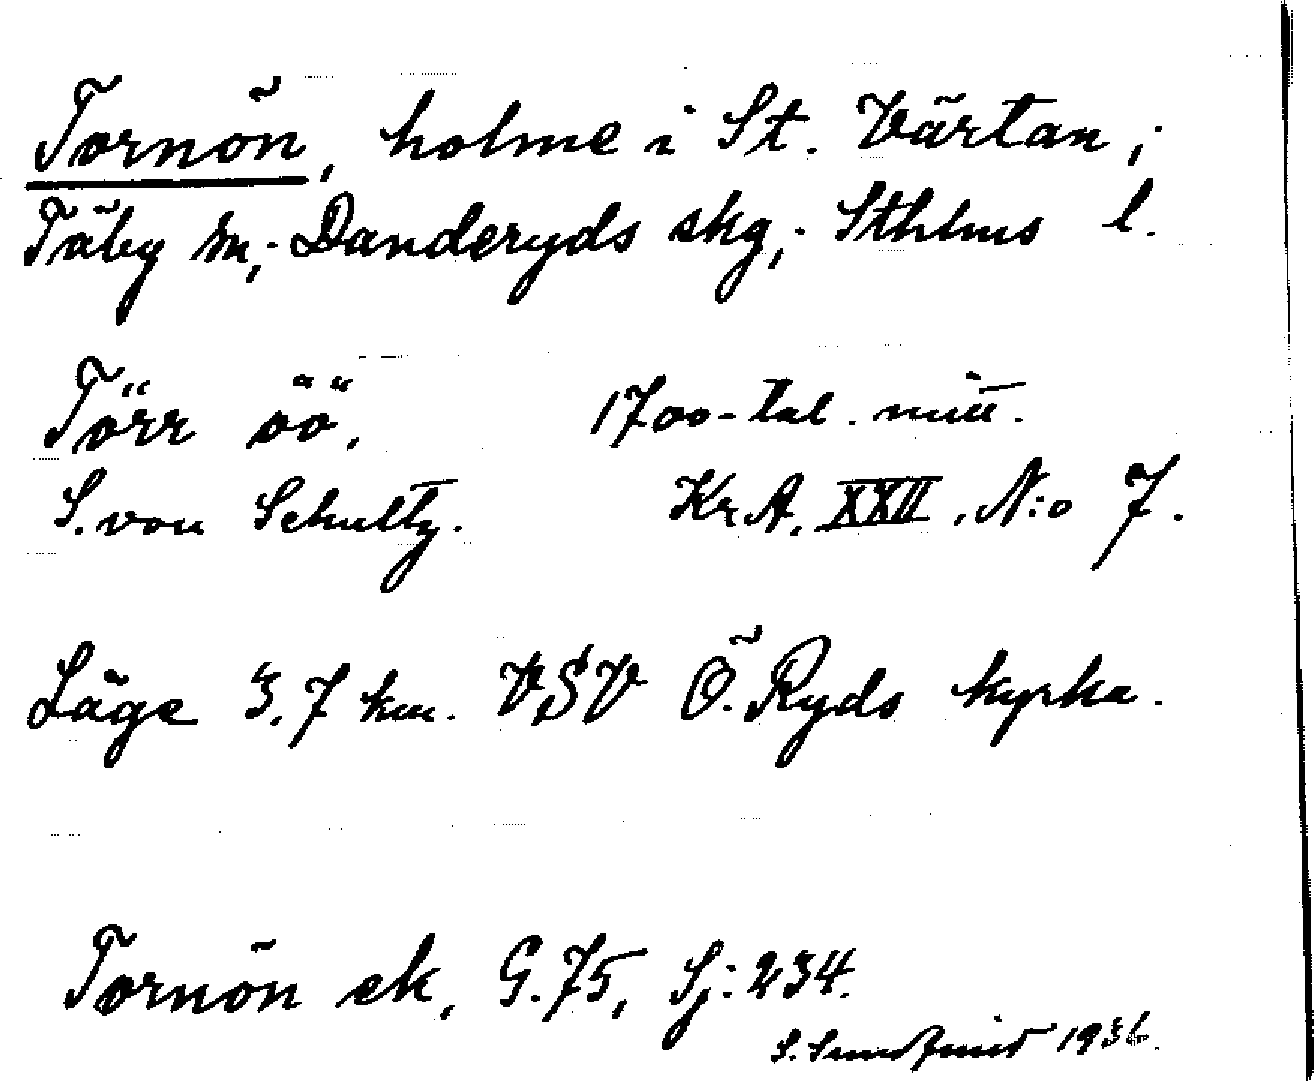 Tornön, holme i St. Värtan;
Täby sn; Danderyds skg; Sthlms l.
Törr öö. 1700-tal. mitt.
S. von Schultz. Kr.A. XXII. N:o 7.
Läge 3,7 km. VSV Ö. Ryds kyrka.
Tornön ek, G.75, Sj: 234.
S. 1936.